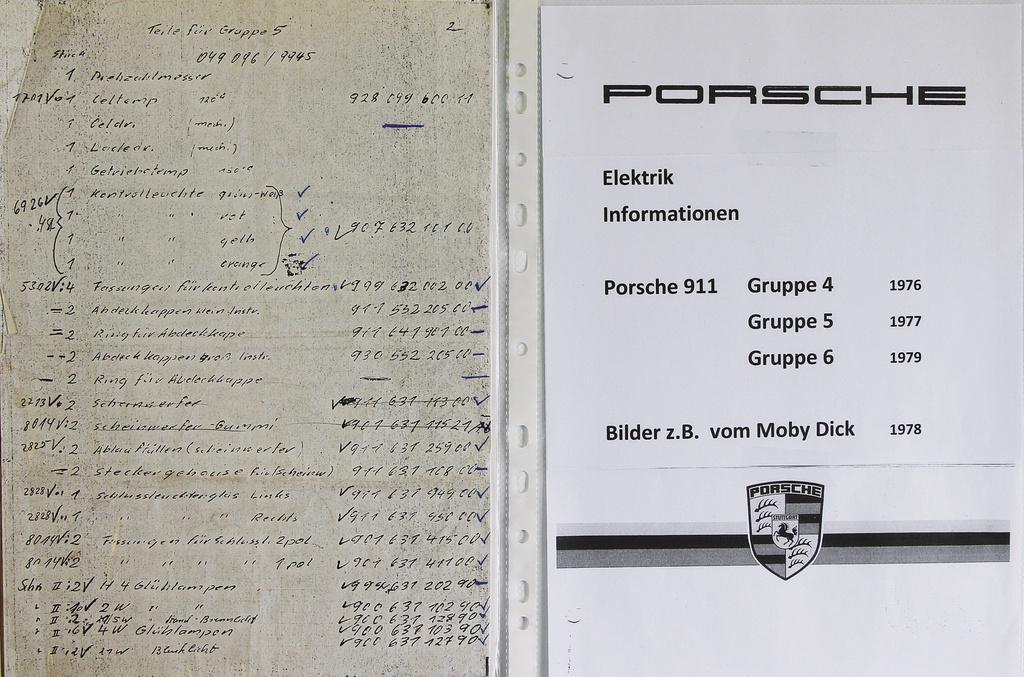 Teile für Gruppe 5 2
Stück 049 096 / 9945
1 Drehzahlmesser
1701 V 1 Oeltemp 928 099 600 11
1 Oeldr. (mech.)
1 Ladedr. (mech.)
1 Getriebetemp 150°C
6926 V 1 Kontrolleuchte grün-weiß ✓
1 " " rot ✓
1 " " gelb ✓ 907 632 101 00
1 " " orange ✓
5302 V: 4 Fassungen für Kontrolleuchten ✓ 999 632 002 00 ✓
= 2 Abdeckkappen klein Instr. 911 552 205 00 –
= 2 Ring für Abdeckkape 911 641 901 00 –
-- 2 Abdeckkappen groß Instr. 930 552 205 00 –
— 2 Ring für Abdeckkappe — —
2713 V. 2 Scheinwerfer ✓ 911 631 113 00 ✓
8014 V: 2 Scheinwerfer-Gummi ✓ 901 631 115 21
2825 V. 2 (Scheinwerfer) ✓ 911 631 259 00 ✓
= 2 Steckergehäuse für (Scheinw) 911 631 108 00 –
2828 V. 1 Schlussleuchtenglas Links ✓ 911 631 949 00 ✓
2828 V. 1 " " Rechts ✓ 911 631 950 00 ✓
8014 V: 2 Fassungen für Schlussl. 2 pol ✓ 901 631 415 00 ✓
8014 V: 2 " " " " 1 pol ✓ 901 631 411 00 ✓
II : 2 V H 4 Glühlampen 631 202 90 –
" II : 10 V 2 W " " ✓ 900 631 102 90 ✓
" II : 2 ✓ 900 631 128 90 ✓
" II : 6 V 4 W Glühlampen ✓ 900 631 103 90 ✓
" II : 2 V 21 W Blinklicht ✓ 900 631 127 90 ✓
PORSCHE
Elektrik
Informationen
Porsche 911 Gruppe 4 1976
Gruppe 5 1977
Gruppe 6 1979
Bilder z.B. vom Moby Dick 1978
PORSCHE
STUTTGART